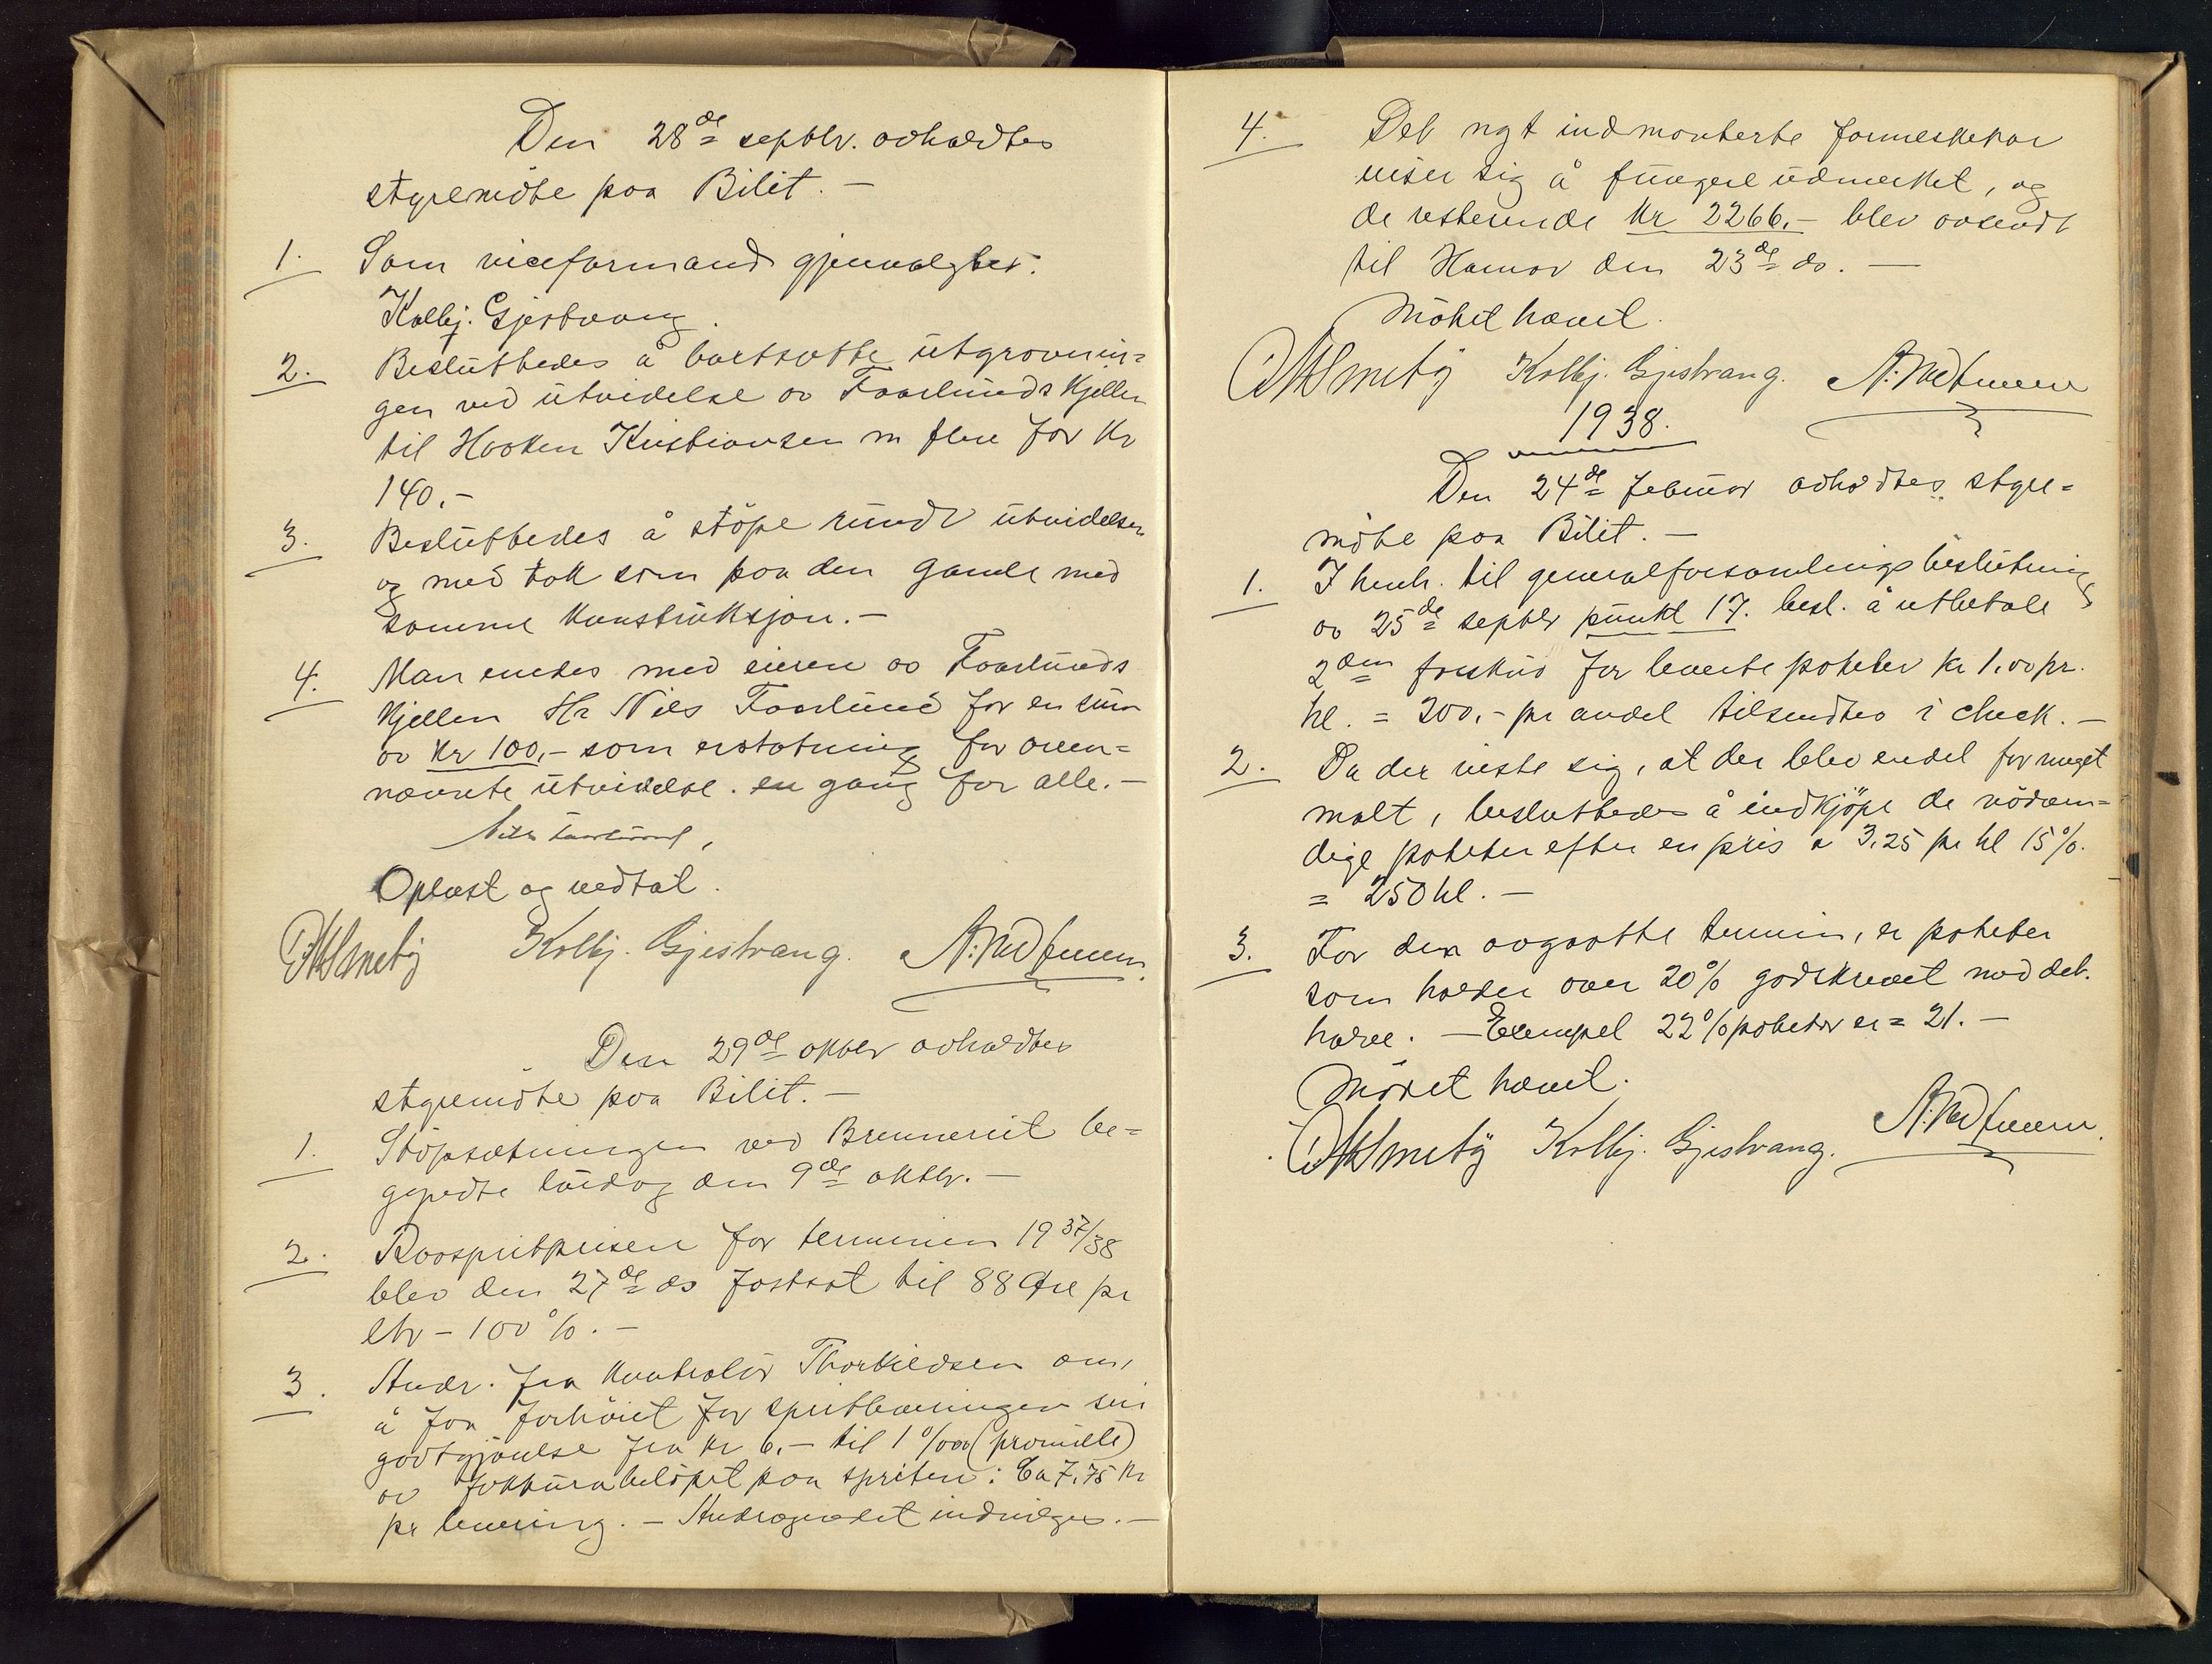 Den 28de septbr. avholdtes
styremöte paa Bilit. —
1. Som viceformand gjenvalgtes:
Kolbj. Gjestvang.
2. Besluttedes å bortsætte utgravnin=
gen ved utvidelse av Faarlunds Kjeller
til Haaken Kristiansen m flere for Kr
140.-
3. Besluttedes å stöpe rundt utvidelsen
og med tak som paa den gamle med
samme Konstruksjon. —
4. Man enedes med eieren av Faarlunds
Kjelleren Hr Nils Faarlund for en sum
av Kr 100,- som erstatning for oven=
nævnte utvidelse. en gang for alle. —
Nils Faarlund,
Oplæst og vedtat.
Smeby Kolbj. Gjestvang.
Den 29de oktbr avholdtes
styremöte paa Bilit. —
1. Stöpsætningen ved Brenneriet be=
gyndte lördag den 9de oktbr. —
2. Raaspritprisen for terminen 1937/38
blev den 27de ds fastsat til 88 Öre pr
ltr - 100 %. —
3. Andr. fra Kontrolör Thorkildsen om,
å faa forhöiet for spritleveringen sin
godtgjörelse fra Kr 6,- til 1 %oo (promille)
av fakturabelöpet paa spriten: Ca 7,75 Kr
pr levering. — Andragendet indvilges. —
4. Det nyt indmonterte formeskekar
viser sig å fungere udmerket, og
de resterende Kr 2266,- blev avsendt
til Hamar den 23de ds. —
Möhet hævet.
Smeby Kolbj. Gjestvang.
1938.
Den 24de februar avholdtes styre=
möte paa Bilit. —
1. I henh. til generalforsamlingsbeslutning
av 25de septbr punkt 17. besl. å utbetale
2den forskud for leverte poteter Kr 1.00 pr.
hl. = 200,- pr andel tilsendtes i check. —
2. Da der viste sig, at der blev endel for meget
malt, besluttedes å indkjöpe de nödven=
dige poteter efter en pris a 3,25 pr hl 15 %.
= 250 hl. —
3. For den avgaatte termin, er poteter
som holder over 20 % godskrevet med det.
halve. — Exempel 22 % poteter er = 21. —
Möhet hævet.
Smeby Kolbj. Gjestvang.